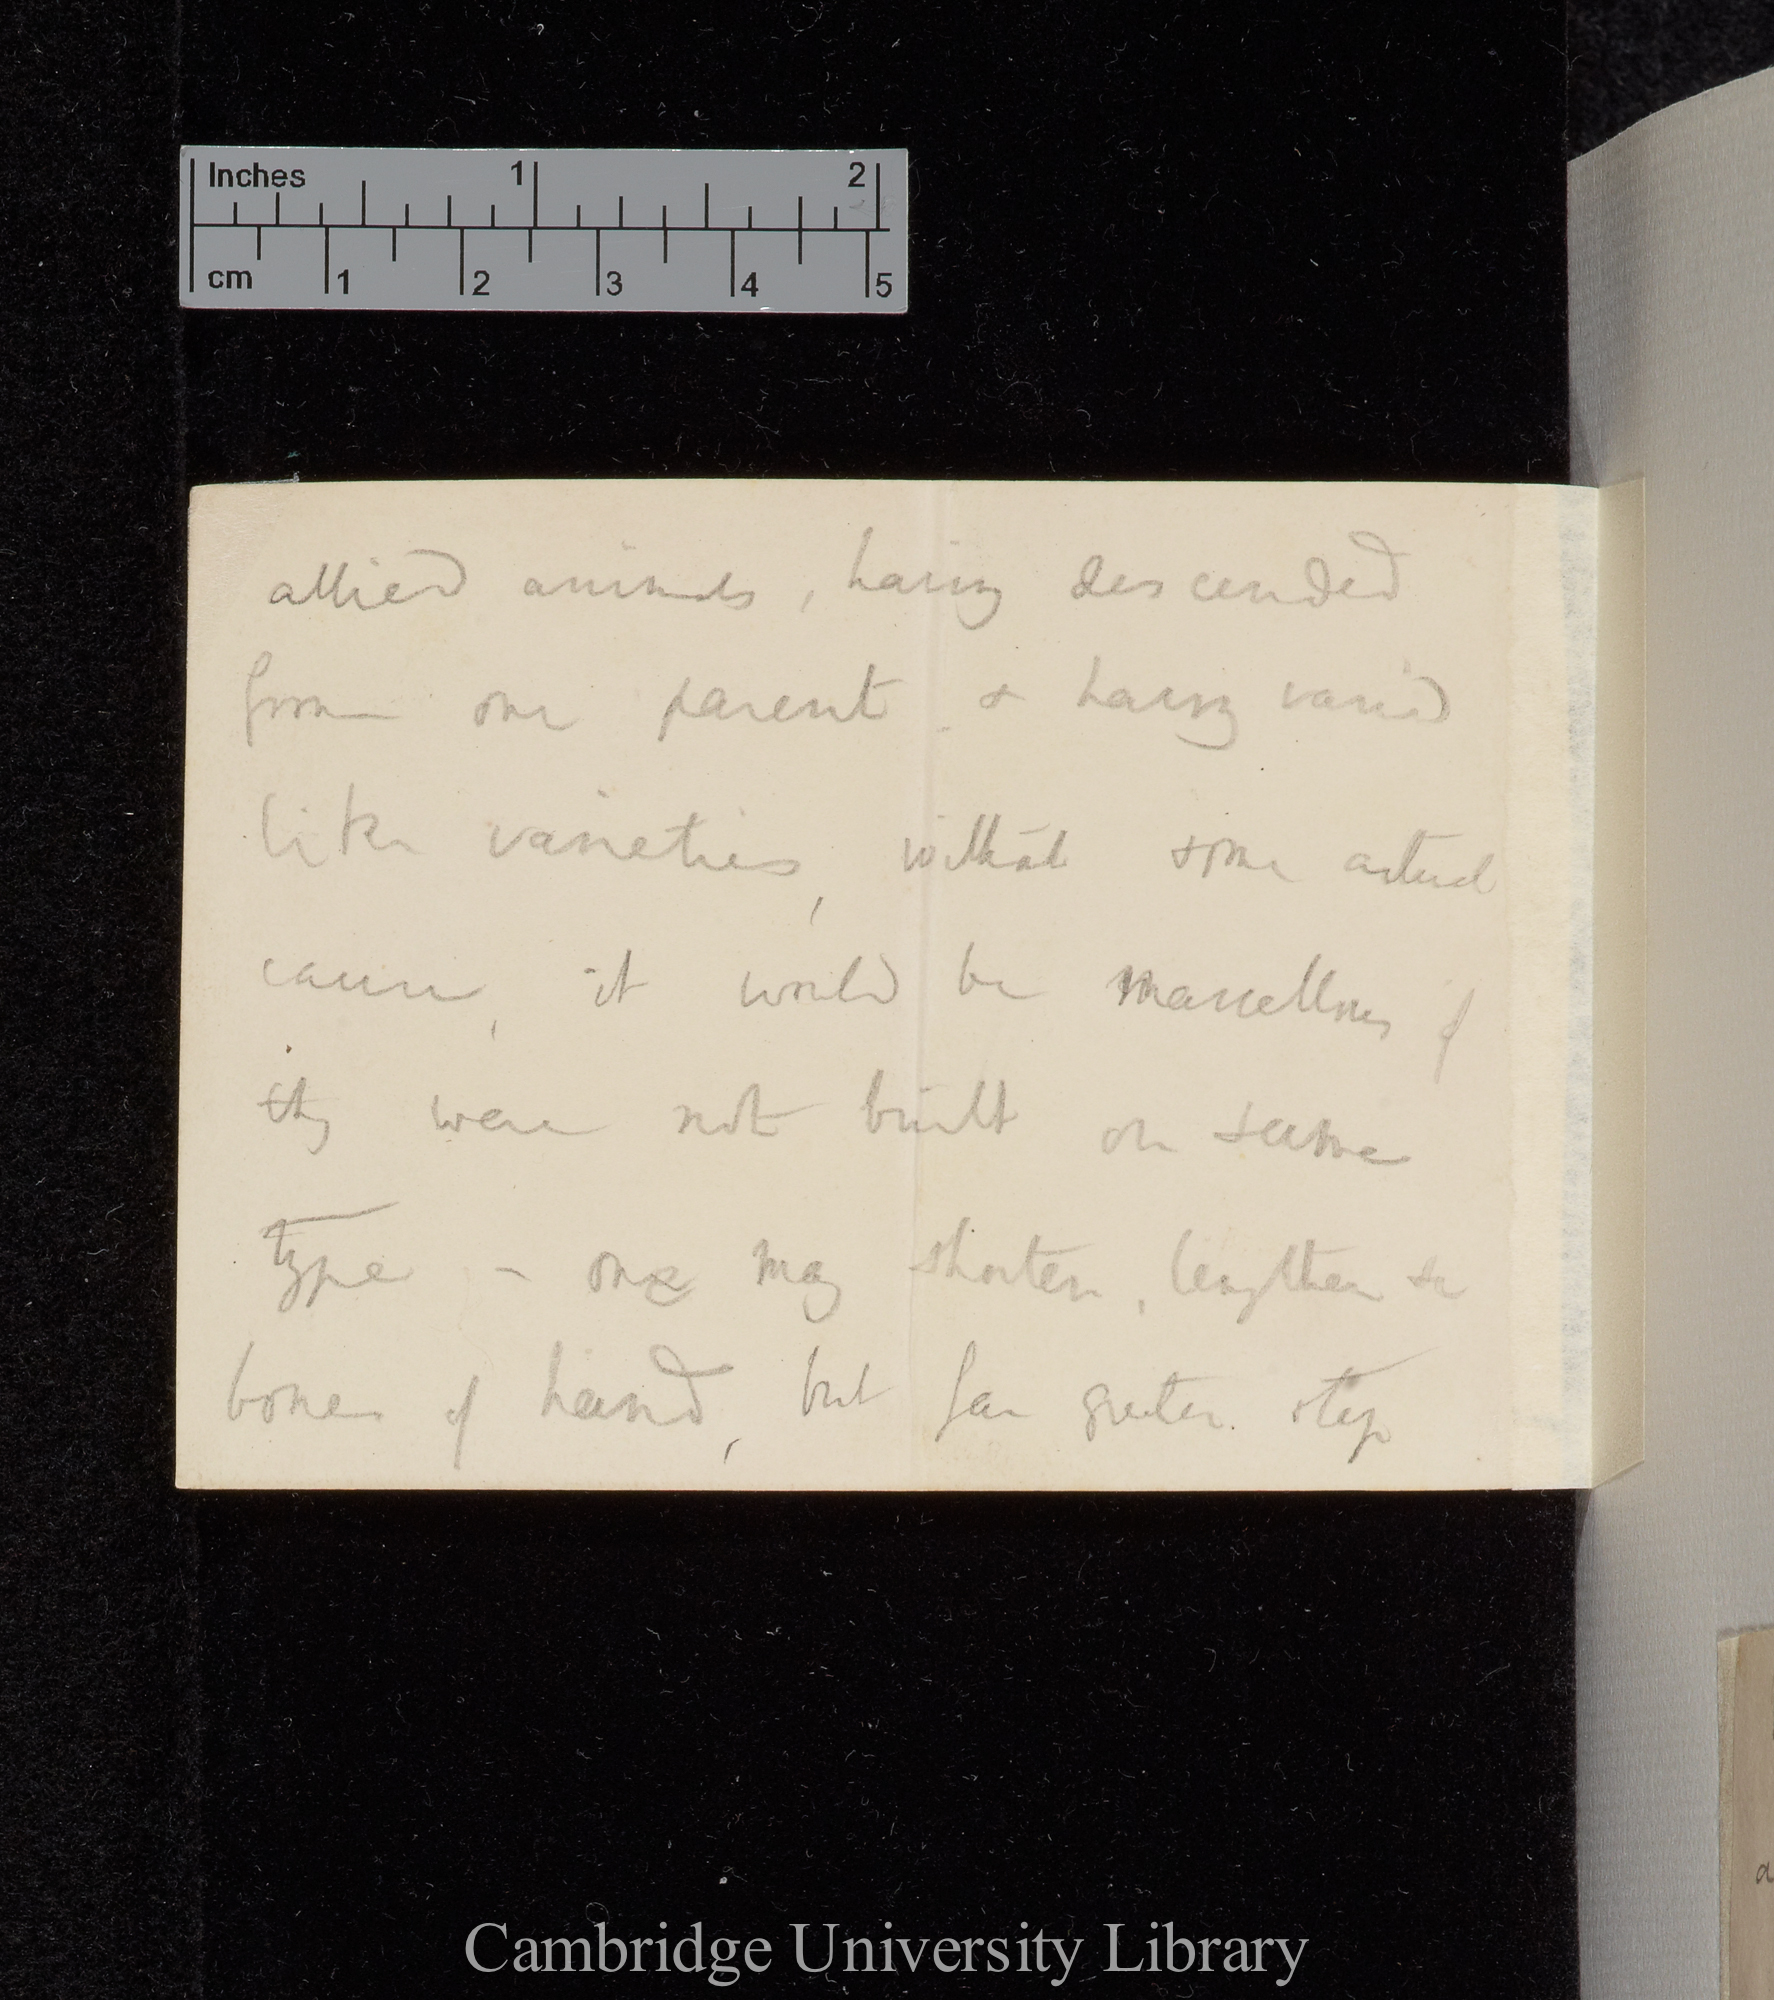 Inches 1 2
cm 1 2 3 4 5
allied animals, having descended
from one parent & having varied
like varieties, without some actual
cause, it would be marvellous if
they were not built on same
type – one may shorten, lengthen &c
bones of hand, but far greater step
Cambridge University Library